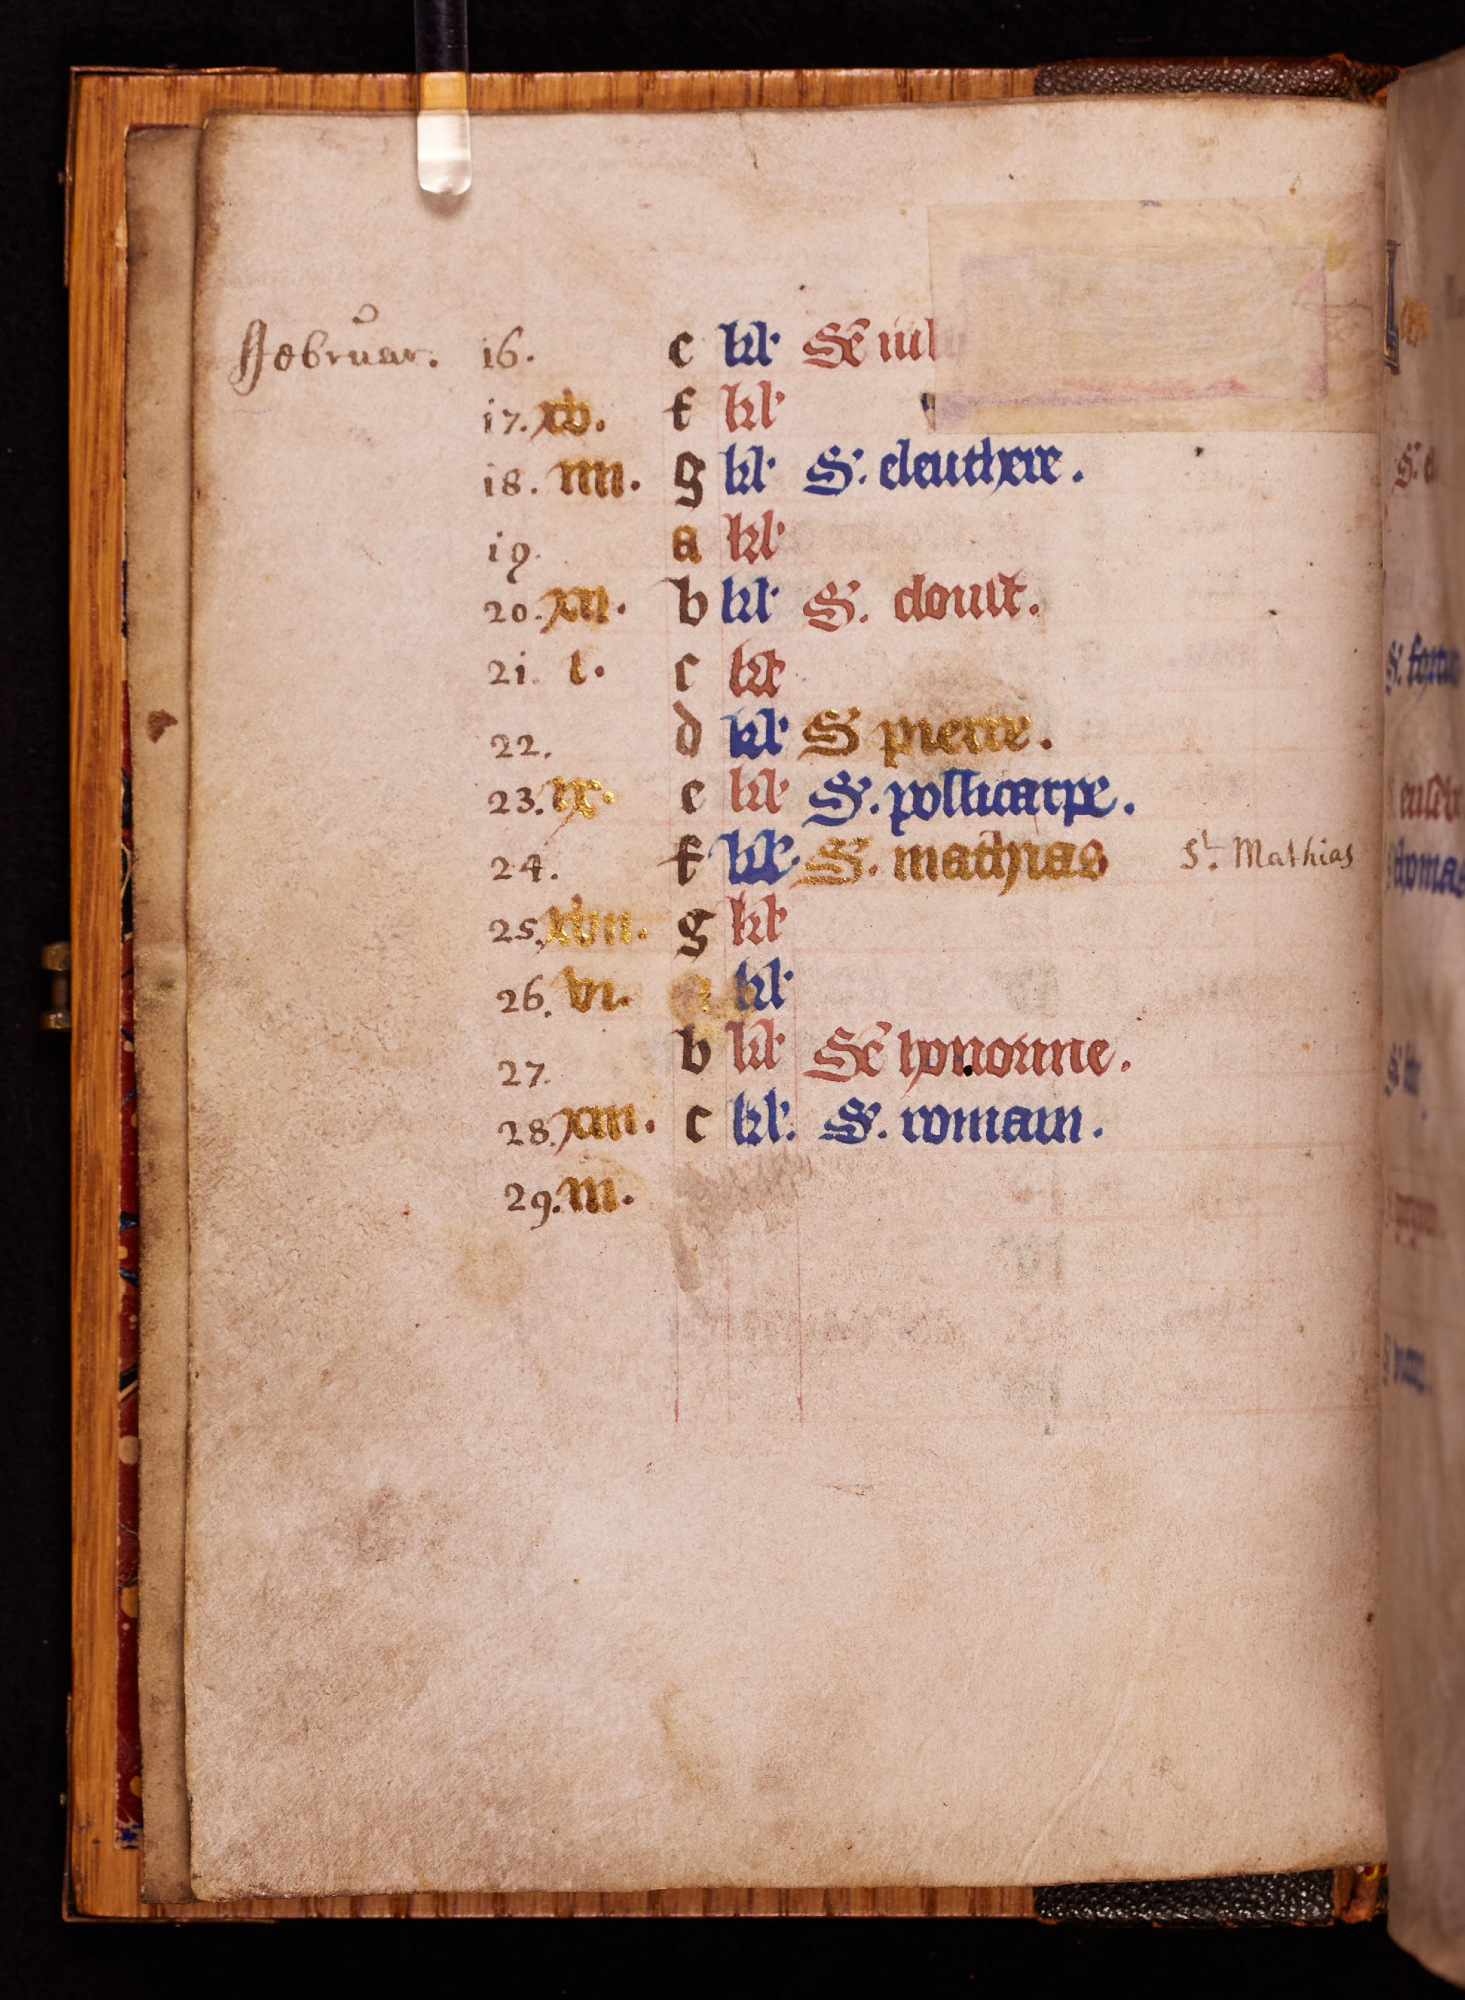 Februar. 16. e kl' Sē iul
17. xv. f kl'
18. iiii. g kl' S'. eleuthere.
19. a kl'
20. xii. b kl' S. doust.
21. i. c kl'
22. d kl' S pierre.
23. ix. e kl' S'. pollicarpe.
24. f kl' S. mathias St. Mathias
25. xvii. g kl'
26. vi. a kl'
27. b kl' Sē honorine.
28. xiiii. c kl'. S'. romain.
29. iii.